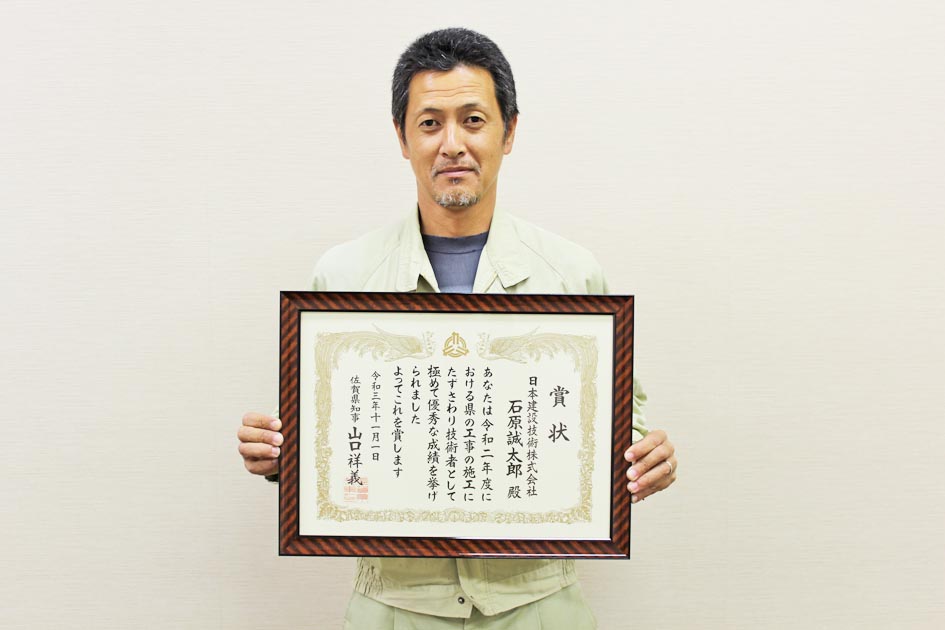 賞状
日本建設技術株式会社
石原誠太郎 殿
あなたは令和二年度に
おける県の工事の施工に
たずさわり技術者として
極めて優秀な成績を挙げ
られました
よってこれを賞します
令和三年十一月一日
佐賀県知事 山口祥義